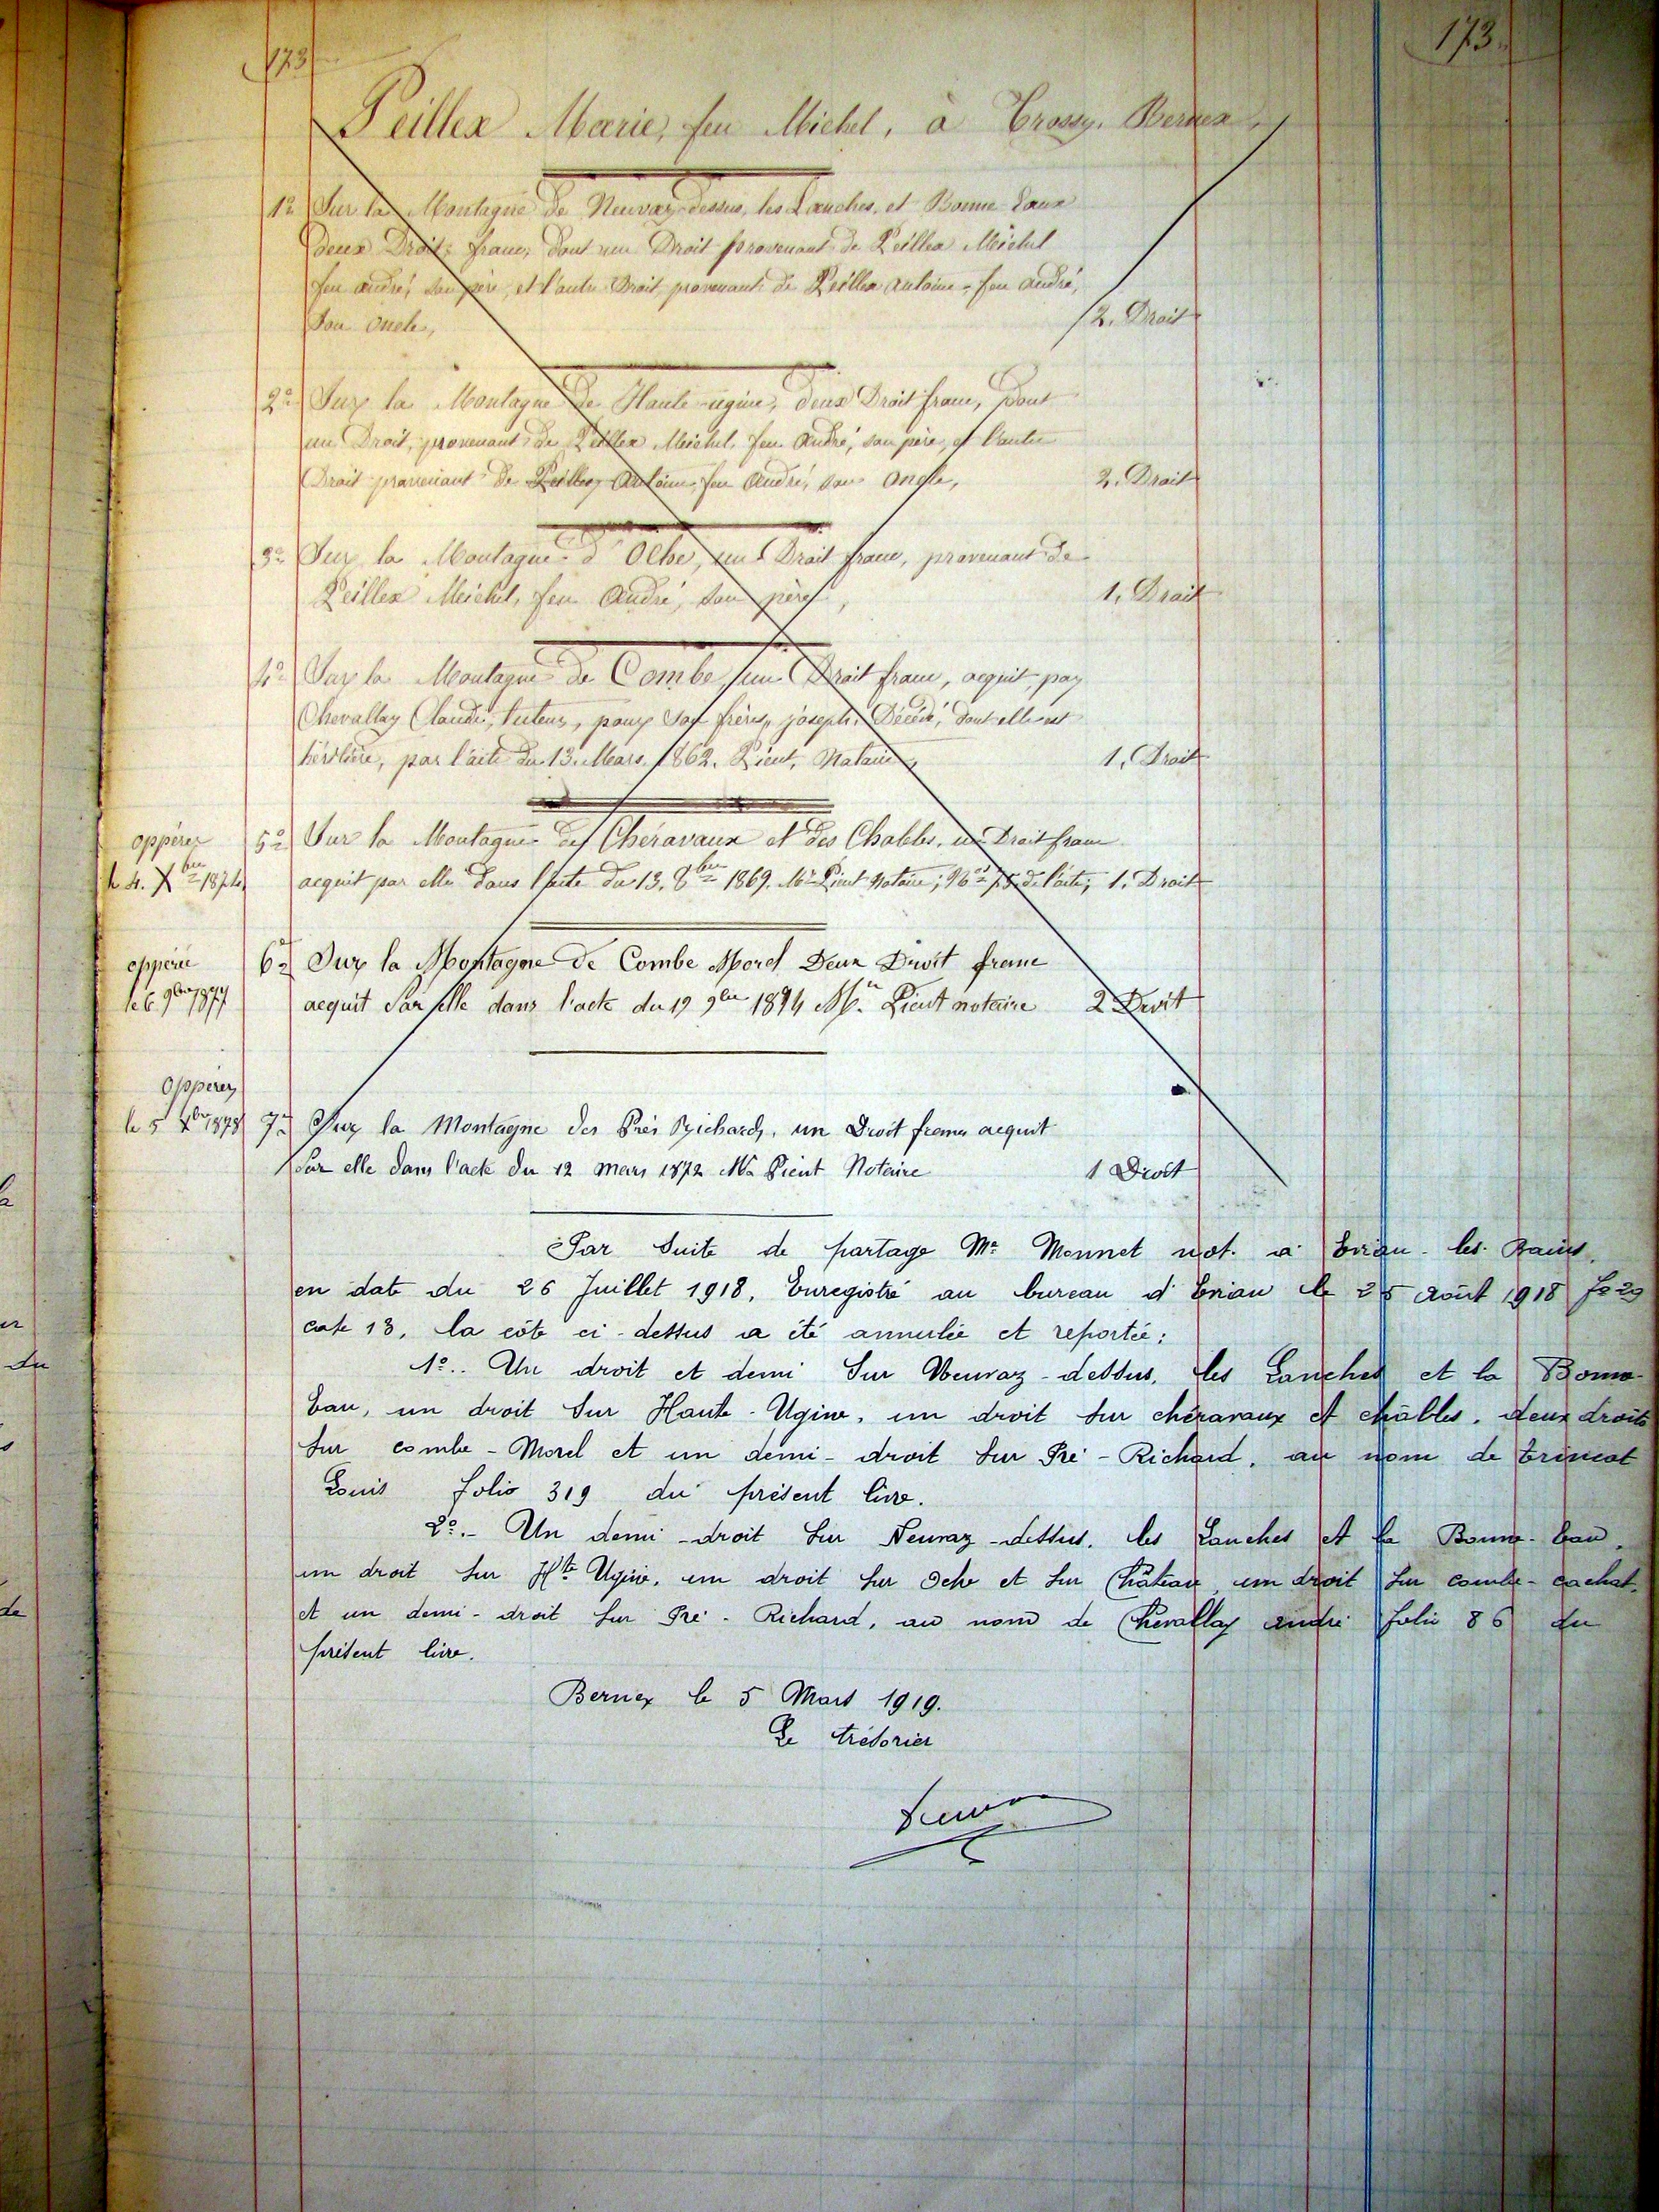 173
173.
Peillex Marie, feu Michel, à Trossy, Bernex,
1º Sur la Montagne de Neuvaz-dessus, les Lanches, et Bonne Eaux
deux Droits franc, dont un Droit provenant de Peillex Michel
feu andré, son père, et l'autre Droit provenant de Peillex antoine, feu andré,
Son oncle,
2. Droit
2º Sur la Montagne de Haute-ugine, deux Droit franc, Dont
un Droit, provenant de Peillex Michel, feu André, son père, et l'autre
Droit provenant de Peillex Antoine, feu André, son oncle,
2. Droit
3º Sur la Montagne d'Oche, un Droit franc, provenant de
Peillex Michel, feu André, son père,
1. Droit
4º Sur la Montagne de Combe, un Droit franc, acquit, par
Chevallay Claude, tuteur, pour son frère, joseph, Décédé, dont elle est
héritière, par l'acte du 13. Mars, 1862. Pient, Notaire,
1. Droit
oppérer
le 4. Xbre 1874
5º Sur la Montagne des Cheravaux et des Chables, un Droit franc
acquit par elle dans l'acte du 13. 8bre 1869. Me Pient Notaire; Nº 75 de l'acte; 1. Droit
opperée
le 6 9bre 1877
6º Sur la Montagne de Combe Morel Deux Droit franc
acquit Par elle dans l'acte du 19 9bre 1874 Me Pient notaire 2 Droit
Opperer
le 5 Xbre 1878
7º Sur la Montagne des Prés Richards, un Droit franc acquit
Par elle dans l'acte du 12 Mars 1872 Me Pient Notaire
1 Droit
Par suite de partage Me Monnet not. à Evian-les-Bains,
en date du 26 Juillet 1918, Enregistré au bureau d'Evian le 25 Août 1918 fº 29
case 13, la côte ci-dessus a été annulée et reportée:
1º.. Un droit et demi sur Neuvaz-dessus, les Lanches et la Bonne-
Eau, un droit sur Haute-Ugine, un droit sur chéravaux et châbles, deux droits
sur combe-Morel et un demi-droit sur Pré-Richard, au nom de Trincat
Louis folio 319 du présent livre.
2º.- Un demi-droit sur Neuvaz-dessus, les Lanches et la Bonne-Eau,
un droit sur Hte Ugine, un droit sur Oche et sur Château, un droit sur combe-cachat,
et un demi-droit sur Pré-Richard, au nom de Chevallay André folio 86 du
présent livre.
Bernex le 5 Mars 1919.
Le trésorier